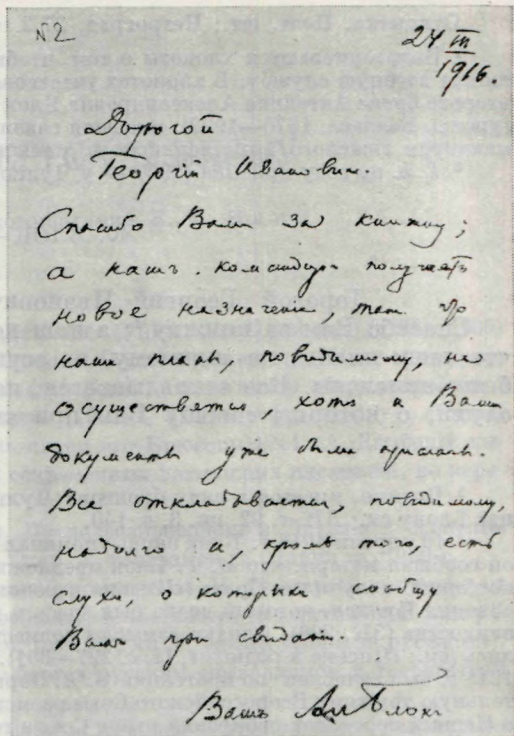 № 2
24 III
1916
Дорогой
Георгій Иванович.
Спасибо Вам за книжку;
а нашъ командиръ получаетъ
новое назначеніе, так что
наши планы, повидимому, не
осуществятся, хотя и Ваши
документы уже были присланы.
Все откладывается, повидимому,
надолго и, кромѣ того, есть
слухи, о которыхъ сообщу
Вамъ при свиданіи.
Вашъ Ал. Блокъ